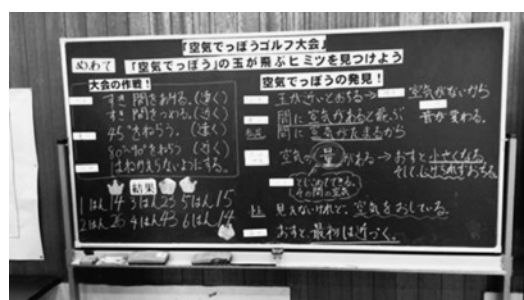 「空気でっぽうゴルフ大会」
めあて 「空気でっぽう」の玉が飛ぶヒミツを見つけよう
大会の作戦!
すき間をあける。(遠く)
すき間をつめる。(近く)
45°をねらう。(遠く)
80°~90°をねらう (近く)
はねかえらないようにする。
結果
1はん 14 3はん 23 5はん 15
2はん 26 4はん 43 6はん 14
空気でっぽうの発見!
玉が近いとおちる→ 空気がないから
音が変わる。
間に空気があると飛ぶ
間に空気がたまるから
空気の量がある→おすと小さくなる
とじこめてできる。
その間の空気
見えないけれど、空気をおしている。
おすと、最初は近づく。